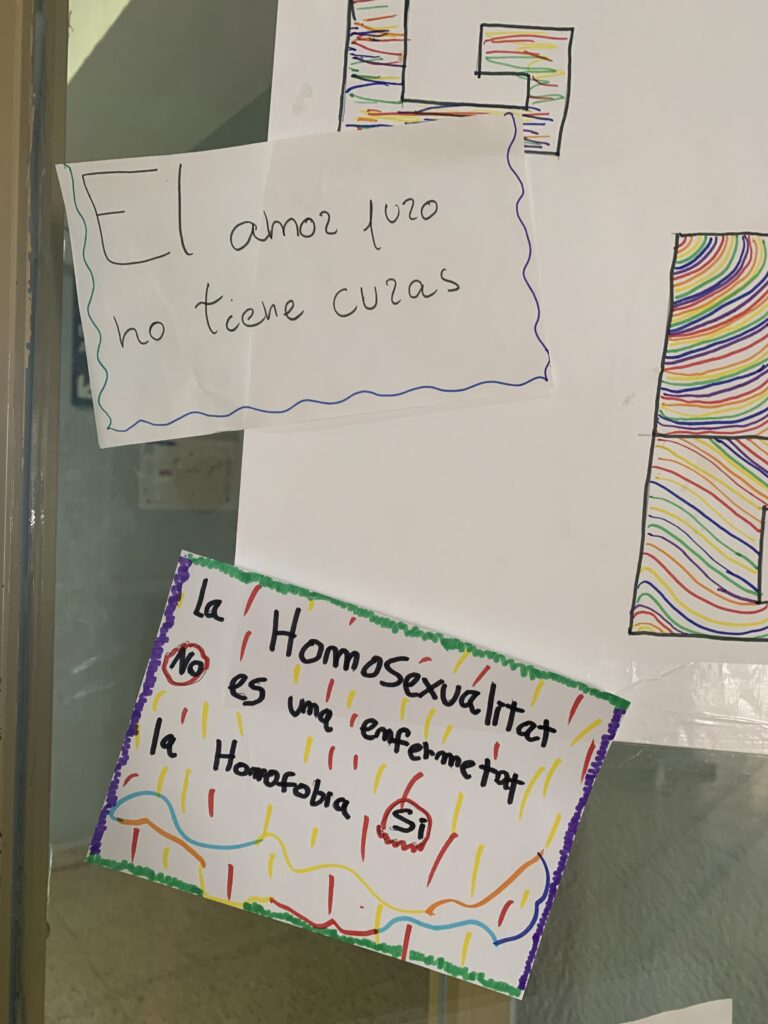 El amor puro
no tiene curas
La Homosexualitat
No es una enfermetat
la Homofobia Si